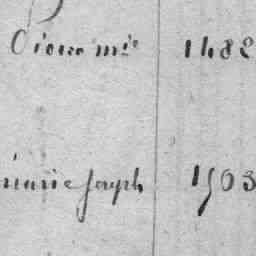 Pierre mie 1482
marie Joseph 1503